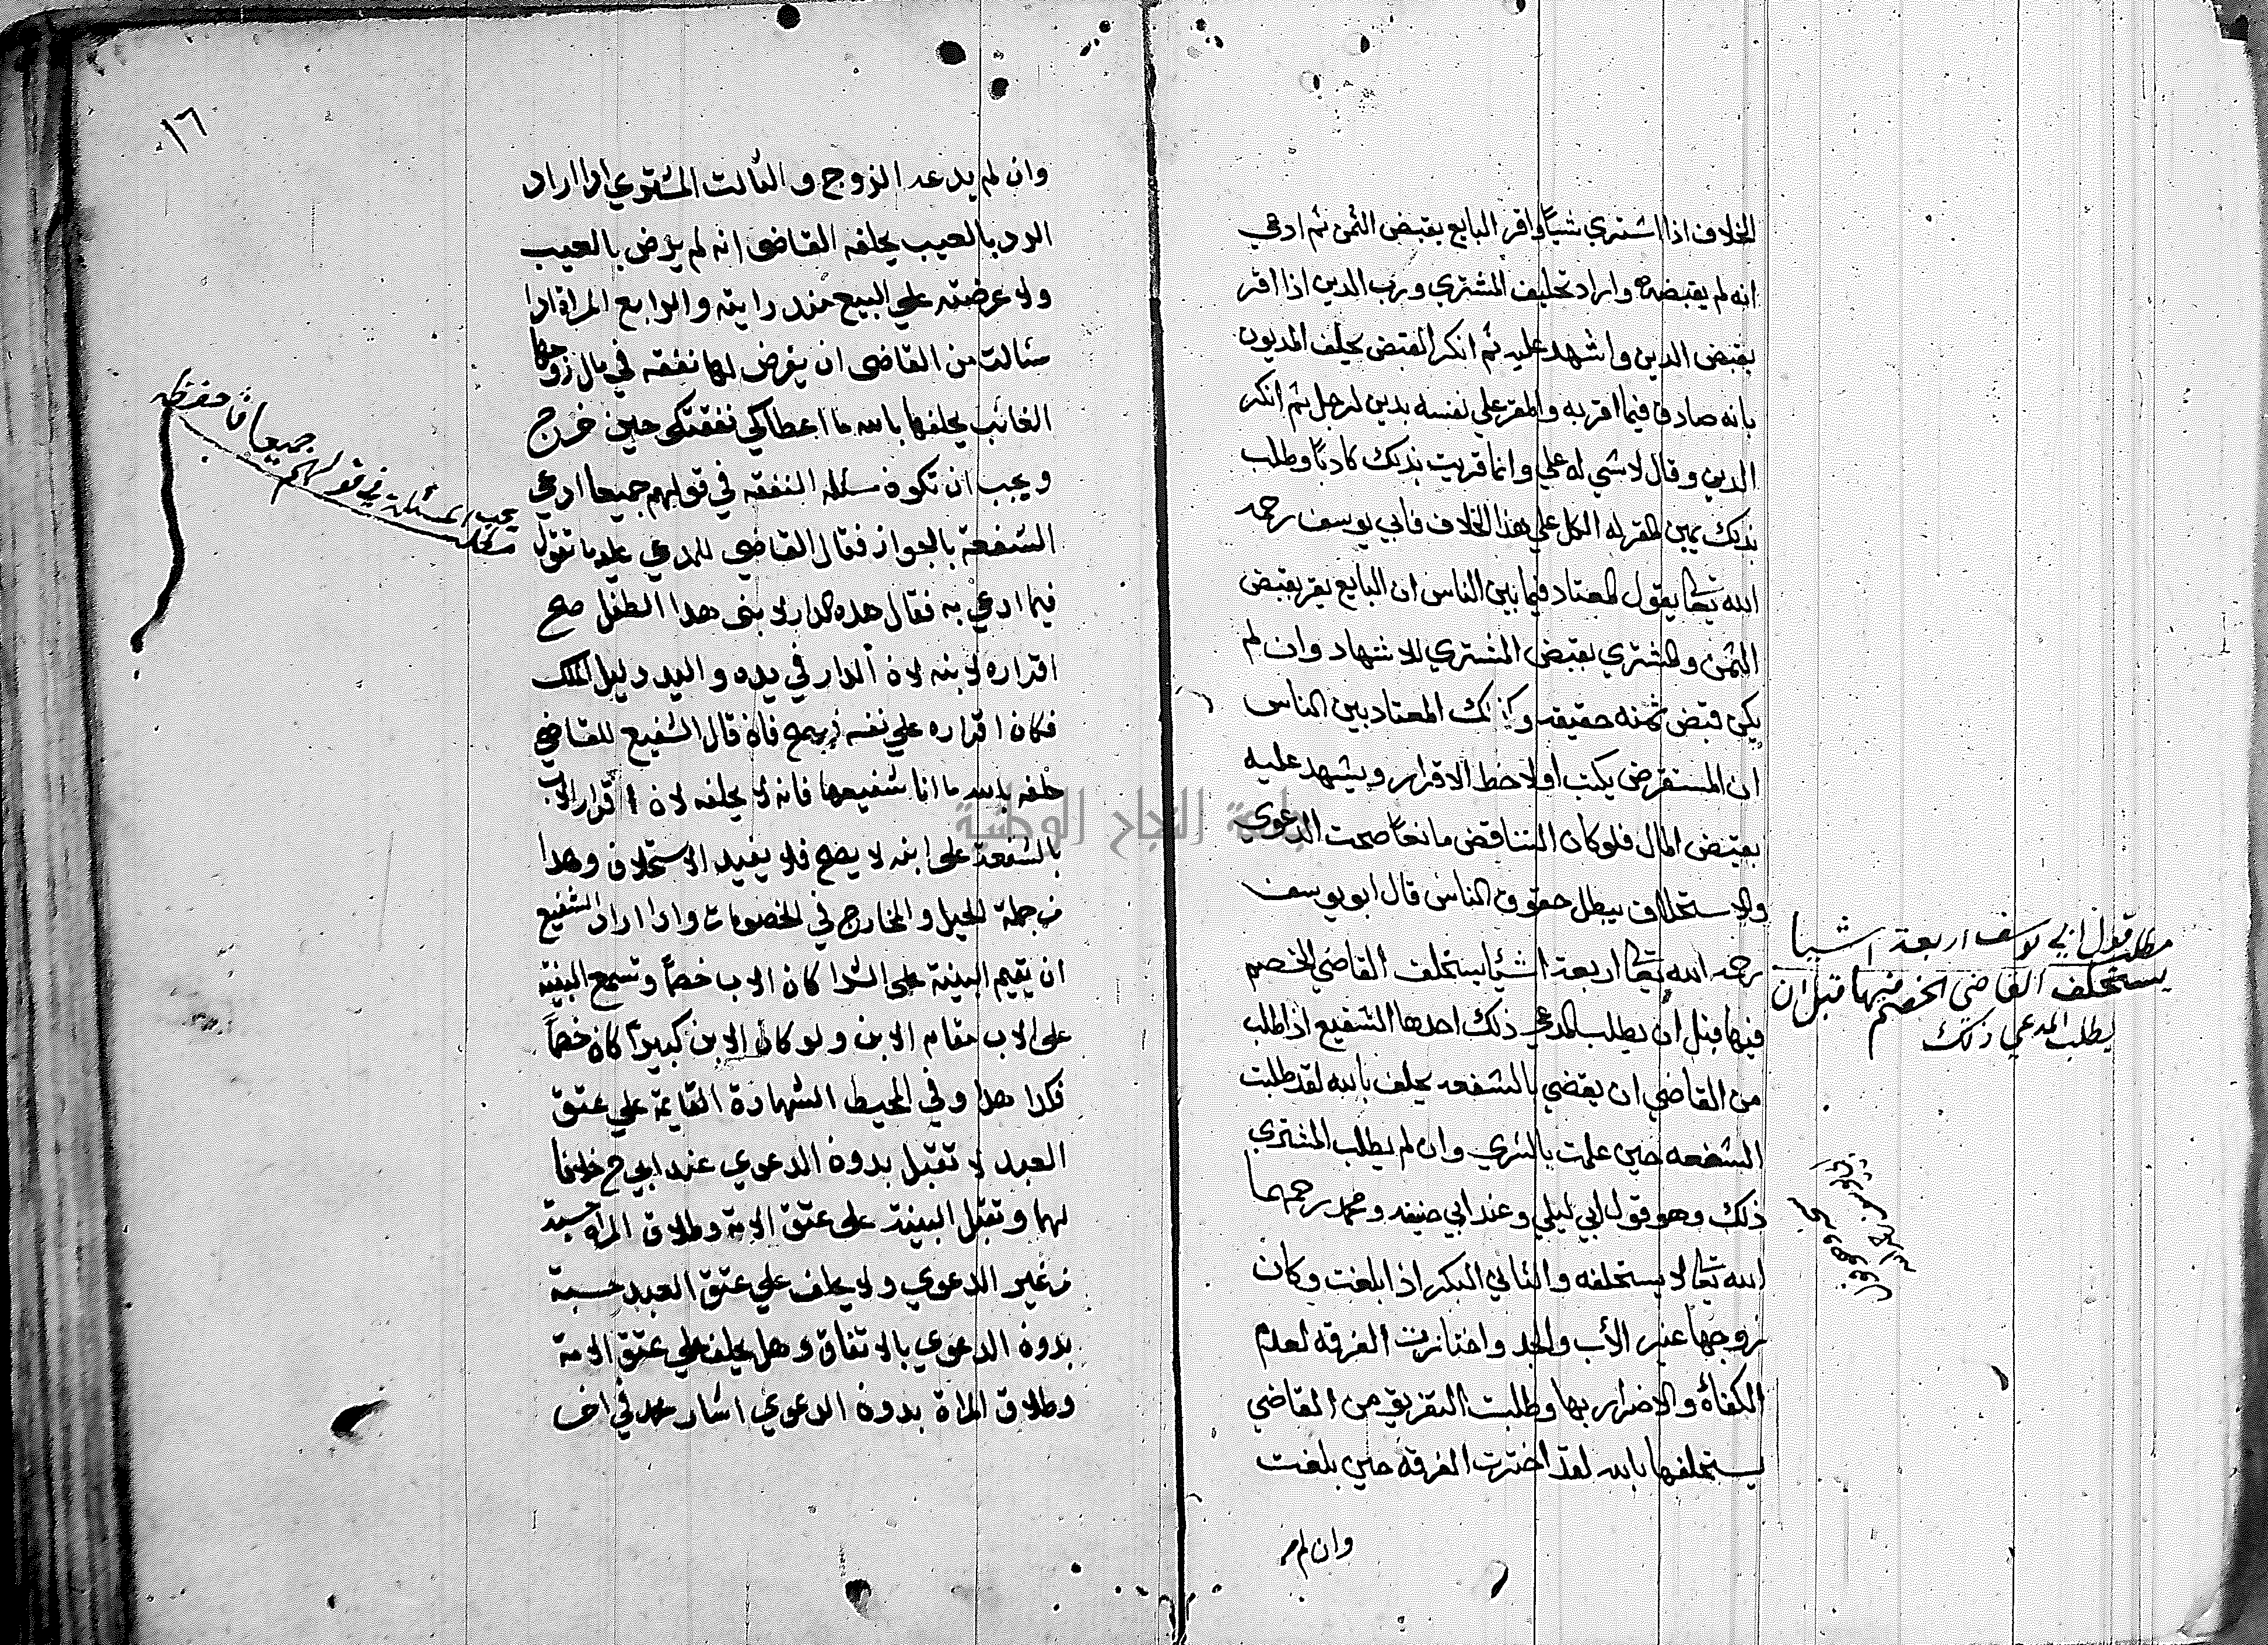 الخلاف اذا اشتري شيئا واقر البايع بقبض الثمن ثم ادعي
انه لم يقبضه واراد تحليف المشتري ورب الدين اذا اقر
بقبض الدين واشهد عليه ثم انكر القبض يحلف المديون
بانه صادق فيما اقر به والمقر علي نفسه بدين لرجل ثم انكر
الدين وقال لا شي له علي وانما قريت بذلك كاذبا وطلب
بذلك يمين المقر له الكل علي هذا الخلاف فابي يوسف رحمه
الله تعالى يقول المعتاد فيما بين الناس ان البايع يقر بقبض
الثمن والمشتري بقبض المشتري للاشهاد وان لم
يكن قبض ثمنه حقيقه وكذلك المعتاد بين الناس
ان المستقرض يكتب اولا خط الاقرار ويشهد عليه
بقبض المال فلو كان التناقض مانعا صحت الدعوي
والاستحلاف يبطل حقوق الناس قال ابو يوسف
رحمه الله تعالى اربعة اشيا يستحلف القاضي الخصم
فيها قبل أن يطلب المدعي ذلك احدها الشفيع اذا طلب
من القاضي ان يقضي بالشفعه يحلف بالله لقد طلبت
الشفعه حين علمت بالشري وان لم يطلب المشتري
ذلك وهو قول ابي ليلي وعند ابي حنيفه ومحمد رحمهما
الله تعالى لا يستحلفه والثاني البكر اذا بلغت وكان
زوجها غير الأب والجد واختارت الفرقه لعدم
الكفاة والاضرار بها وطلبت التفريق من القاضي
يستحلفها بالله لقد اخترت الفرقه حين بلغت
وان لم
مطلب قول ابي يوسف اربعة اشيا
يستحلف القاضي الخصم فيها قبل ان
يطلب المدعي ذلك
١٦
وان لم يدعه الزوج والثالث المشتري اذا اراد
الرد بالعيب يحلفه القاضى انه لم يرض بالعيب
ولا عرضته علي البيع منذ رايته والرابع المراة اذا
سئالت من القاضى ان يفرض لها نفقه في مال زوجها
الغائب يحلفها بالله ما اعطاكي نفقتكى حين خرج
ويجب ان تكون مسئله النفقه في قولهم جميعا ادعي
الشفعة بالجوار فقال القاضي للمدعي عليه ما تقول
فيما ادعي به فقال هذه الدار لابنى هدا الطفل صح
اقراره لابنه لان الدار في يده واليد دليل الملك
فكان اقراره علي نفسه فيصح فان قال الشفيع للقاضي
حلفه بالله ما انا شفيعها فانه لا يحلفه لان اقرار الاب
بالشفعة على ابنه لا يصح فلا يفيد الاستحلاف وهدا
من جملة الحيل والمخارج في الخصومات واذا اراد الشفيع
ان يقيم البينة على الشرا كان الاب خصما وتسمع البينة
على الاب مقام الابن ولو كان الابن كبيرا كان خصما
فكدا هدا وفي المحيط الشهادة القايمة علي عتق
العبد لا تقبل بدون الدعوي عند ابي ح خلافا
لهما وتقبل البينة على عتق الامة وطلاق المراة حسبة
من غير الدعوي ولا يحلف علي عتق العبد حسبة
بدون الدعوي بالاتفاق وهل يحلف علي عتق الامة
وطلاق المراة بدون الدعوي اشار محمد في اخر
يجب المسئلة في قولهم جميعا فاحفظه